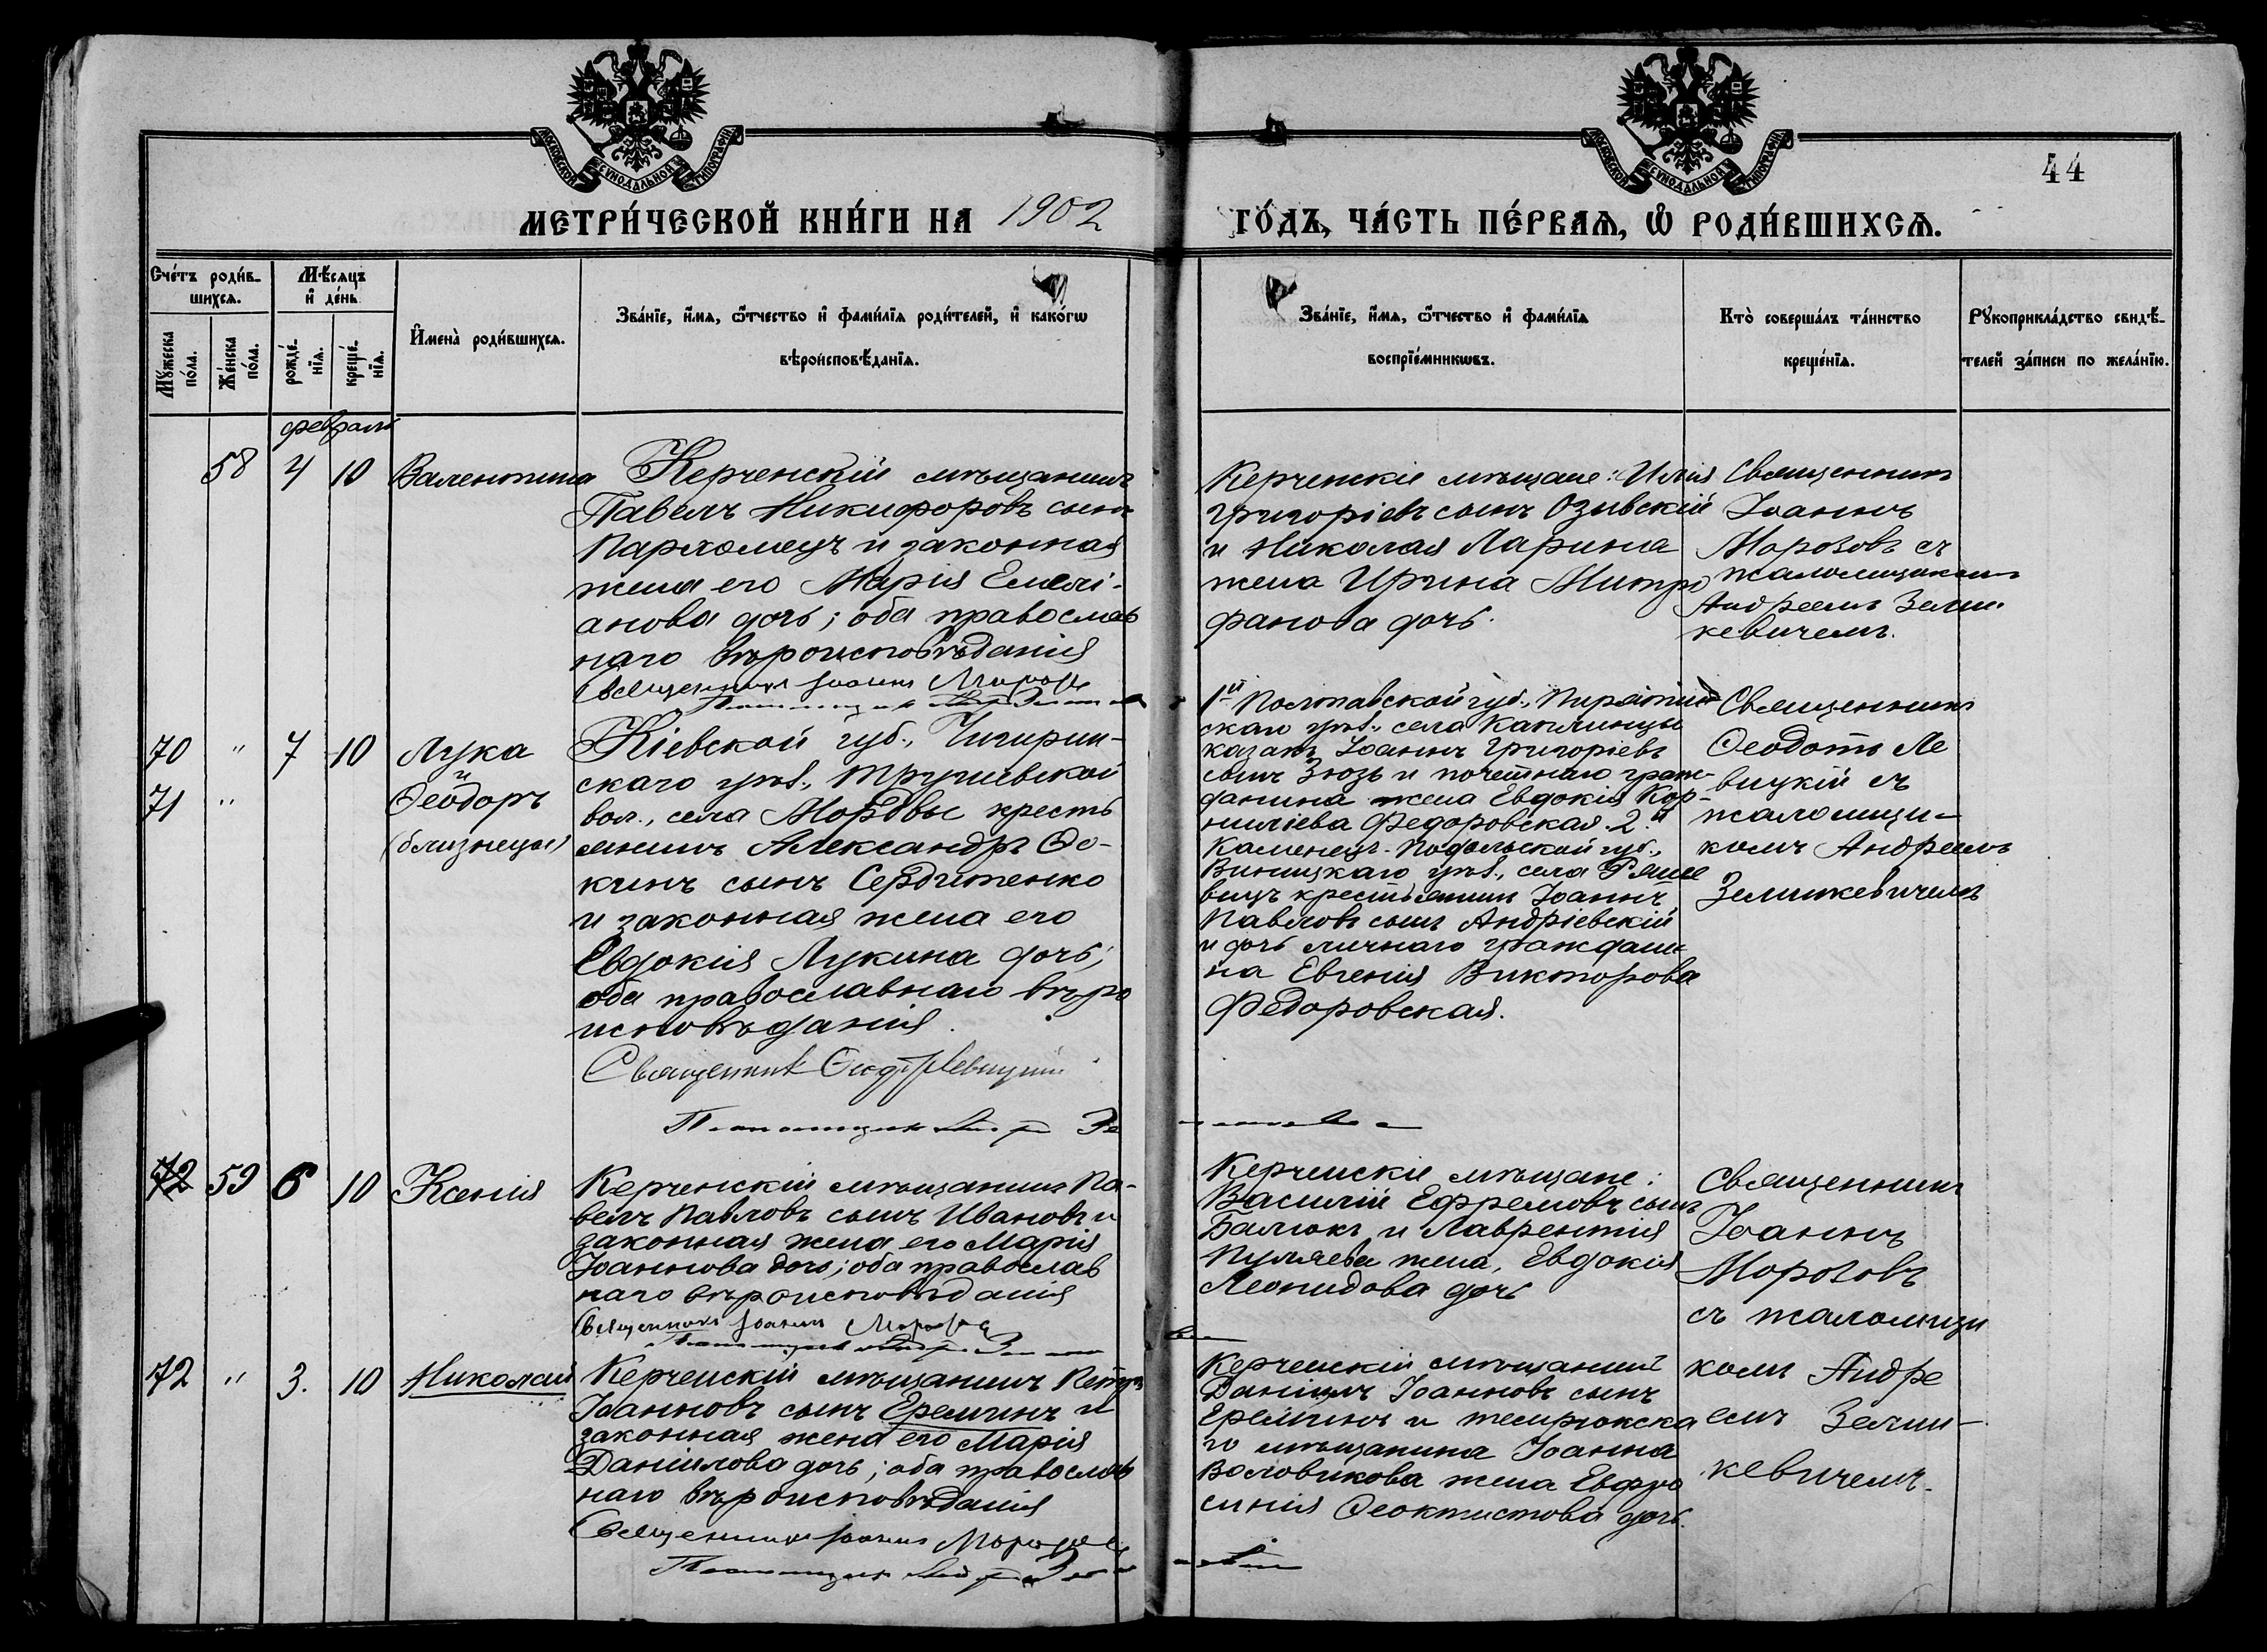 МОСКОВСКОЙ СѴНОДАЛЬНОЙ ТИПОГРАФІИ
МОСКОВСКОЙ СѴНОДАЛЬНОЙ ТИПОГРАФІИ
44
МЕТРИ́ЧЕСКОЙ КНИ́ГИ НА 1902
ГО́ДЪ, ЧА́СТЬ ПЕ́РВАѦ, Ѡ҆ РОДИ́ВШИХСѦ.
Сче́тъ роди́в-
шихсѧ.
Мꙋ́жеска
по́ла.
Же́нска
по́ла.
Мѣ́сѧцъ
и҆ де́нь
рожде́-
нїѧ.
креще́-
нїѧ.
И҆мена̀ роди́вшихсѧ.
Зва́нїе, и҆́мѧ, ѻ҆́тчество и҆ фами́лїѧ роди́телей, и҆ како́гѡ
вѣроисповѣ́данїѧ.
Зва́нїе, и҆́мѧ, ѻ҆́тчество и҆ фами́лїѧ
воспрїе́мникѡвъ.
Кто̀ соверша́лъ та́инство
креще́нїѧ.
Рꙋкоприкла́дство свидѣ́-
телей за́писи по жела́нїю.
февраль
58 4 10 Валентина
Керченскій мѣщанинъ
Павелъ Никифоровъ сынъ
Пархомецъ и законная
жена его Марія Емелі-
анова дочь; оба православ
наго вѣроисповѣданія
Священникъ Іоаннъ Морозовъ
Керченскіе мѣщане: Илія
Григоріевъ сынъ Озивскій
и Николая Ларина
жена Ирина Митро
фанова дочь.
Священникъ
Іоаннъ
Морозовъ съ
псаломщикомъ
Андреемъ Зелин
кевичемъ.
70 " 7 10 Лука
и
71 " Ѳеодоръ
(близнецы)
Кіевской губ., Чигирин-
скаго уѣз., Трушевской
вол., села Мордвы кресть
янинъ Александръ Ѳо-
кинъ сынъ Сердитенко
и законная жена его
Евдокія Лукина дочь;
оба православнаго вѣро
исповѣданія.
Священникъ Ѳеод. Левицкій
Псаломщикъ
1й Полтавской губ., Пирятин
скаго уѣз., села Каплинцы
казакъ Іоаннъ Григоріевъ
сынъ Зюзь и почетнаго граж-
данина жена Евдокія Кор-
ниліева Федоровская. 2й
Каменецъ-Подольской губ.,
Виницкаго уѣз., села
вицъ крестьянинъ Іоаннъ
Павловъ сынъ Андріевскій
и дочь личнаго граждани
на Евгенія Викторова
Федоровская.
Священникъ
Ѳеодотъ Ле
вицкій съ
псаломщи-
комъ Андреемъ
Зелинкевичемъ
72 59 6 10 Ксенія
Керченскій мѣщанинъ Па-
велъ Павловъ сынъ Ивановъ и
законная жена его Марія
Іоаннова дочь; оба православ
наго вѣроисповѣданія
Священникъ Іоаннъ Морозовъ
Керченскіе мѣщане:
Василій Ефремовъ сынъ
Балюкъ и Лаврентія
Пуляева жена, Евдокія
Леонидова дочь
Священникъ
Іоаннъ
Морозовъ
съ псаломщи
72 " 3. 10 Николай
Керченскій мѣщанинъ Петръ
Іоанновъ сынъ Ереминъ и
законная жена его Марія
Даніилова дочь; оба православ
наго вѣроисповѣданія
Священникъ Іоаннъ Морозовъ
Псаломщикъ
Керченскій мѣщанинъ
Даніилъ Іоанновъ сынъ
Ереминъ и темрюкска
го мѣщанина Іоанна
Воловикова жена Евфро
синія Ѳеоктистова дочь.
комъ Андре
емъ Зелин-
кевичемъ.